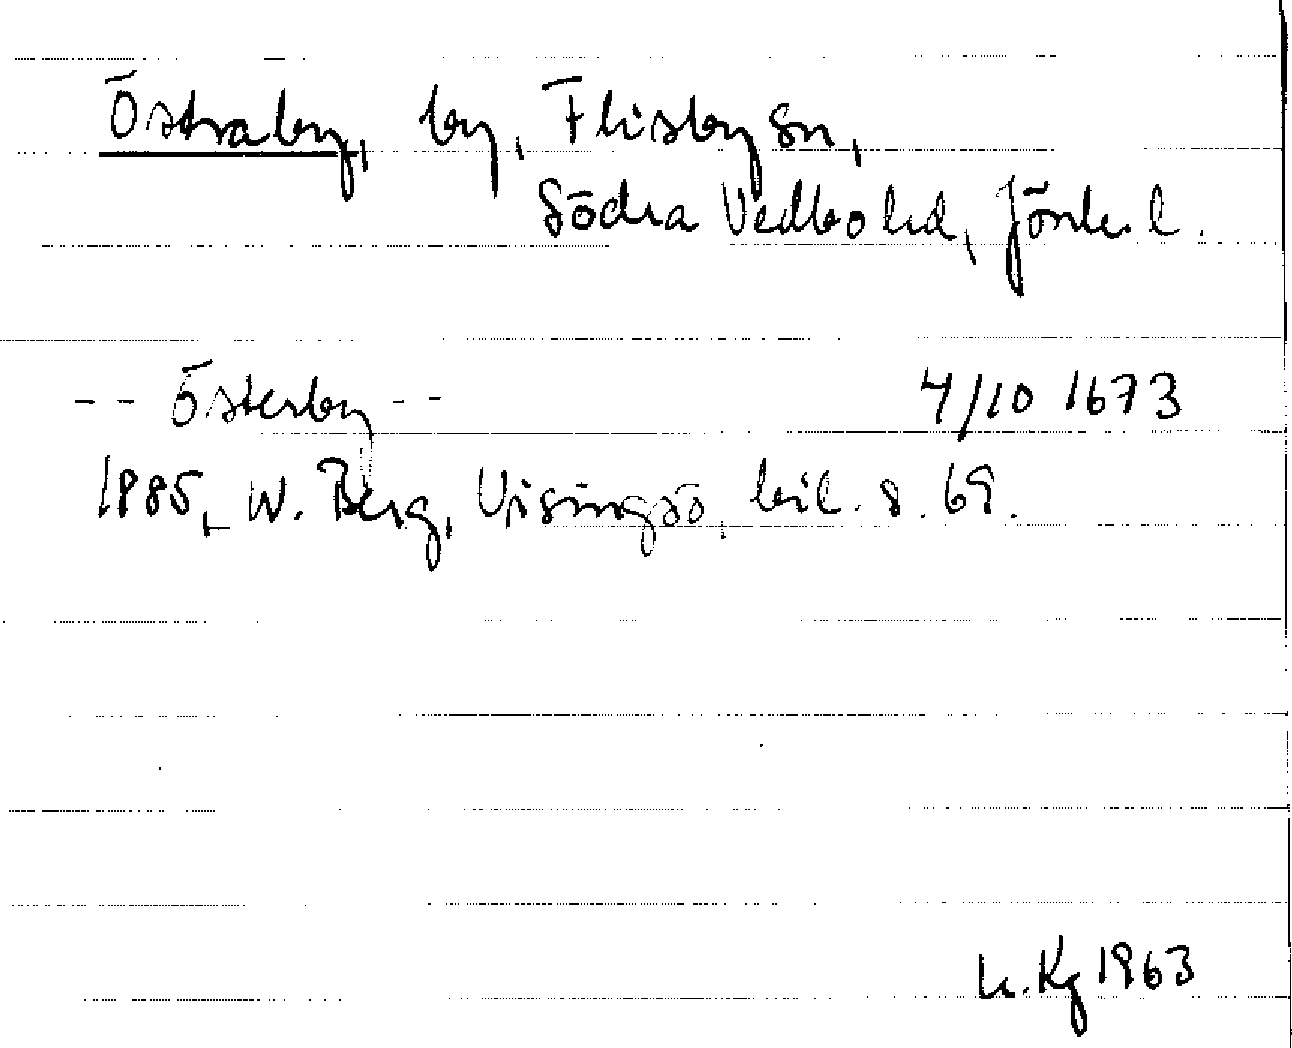 Östraby, by, Flisby sn,
Södra Vedbo hd, Jönk. l.
-- Österby -- 4/10 1673
1885, W. Berg, Visingsö, bil. s. 69.
Kg 1963